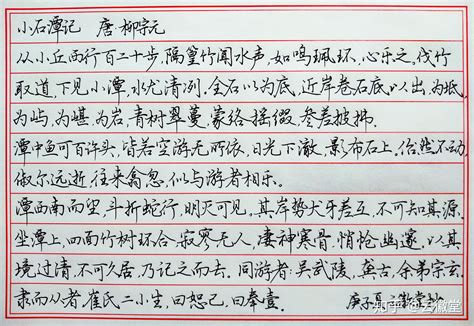 小石潭记 唐·柳宗元
从小丘西行百二十步,隔篁竹闻水声,如鸣珮环,心乐之,伐竹
取道,下见小潭,水尤清冽。全石以为底,近岸卷石底以出,为坻,
为屿,为嵁,为岩,青树翠蔓,蒙络摇缀,参差披拂。
潭中鱼可百许头,皆若空游无所依,日光下澈,影布石上。佁然不动,
俶尔远逝,往来翕忽,似与游者相乐。
潭西南而望,斗折蛇行,明灭可见。其岸势犬牙差互,不可知其源。
坐潭上,四面竹树环合,寂寥无人,凄神寒骨,悄怆幽邃。以其
境过清,不可久居,乃记之而去。同游者:吴武陵,龚古,余弟宗玄。
隶而从者,崔氏二小生,曰恕己,曰奉壹。
知乎